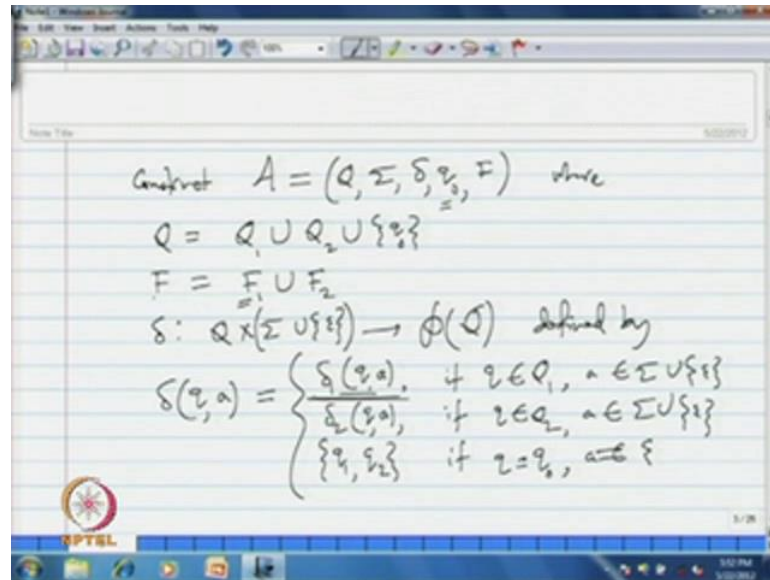 Note1 - Windows Journal
File Edit View Insert Actions Tools Help
Note Title
5/22/2012
Construct A = (Q, Σ, δ, q₀, F) where
Q = Q₁ ∪ Q₂ ∪ {q₀}
F = F₁ ∪ F₂
δ: Q × (Σ ∪ {ε}) → ℘(Q) defined by
δ(q, a) = { δ₁(q, a), if q ∈ Q₁, a ∈ Σ ∪ {ε}
δ₂(q, a), if q ∈ Q₂, a ∈ Σ ∪ {ε}
{q₁, q₂} if q = q₀, a = ε
NPTEL
5/26
5:52 PM
5/22/2012